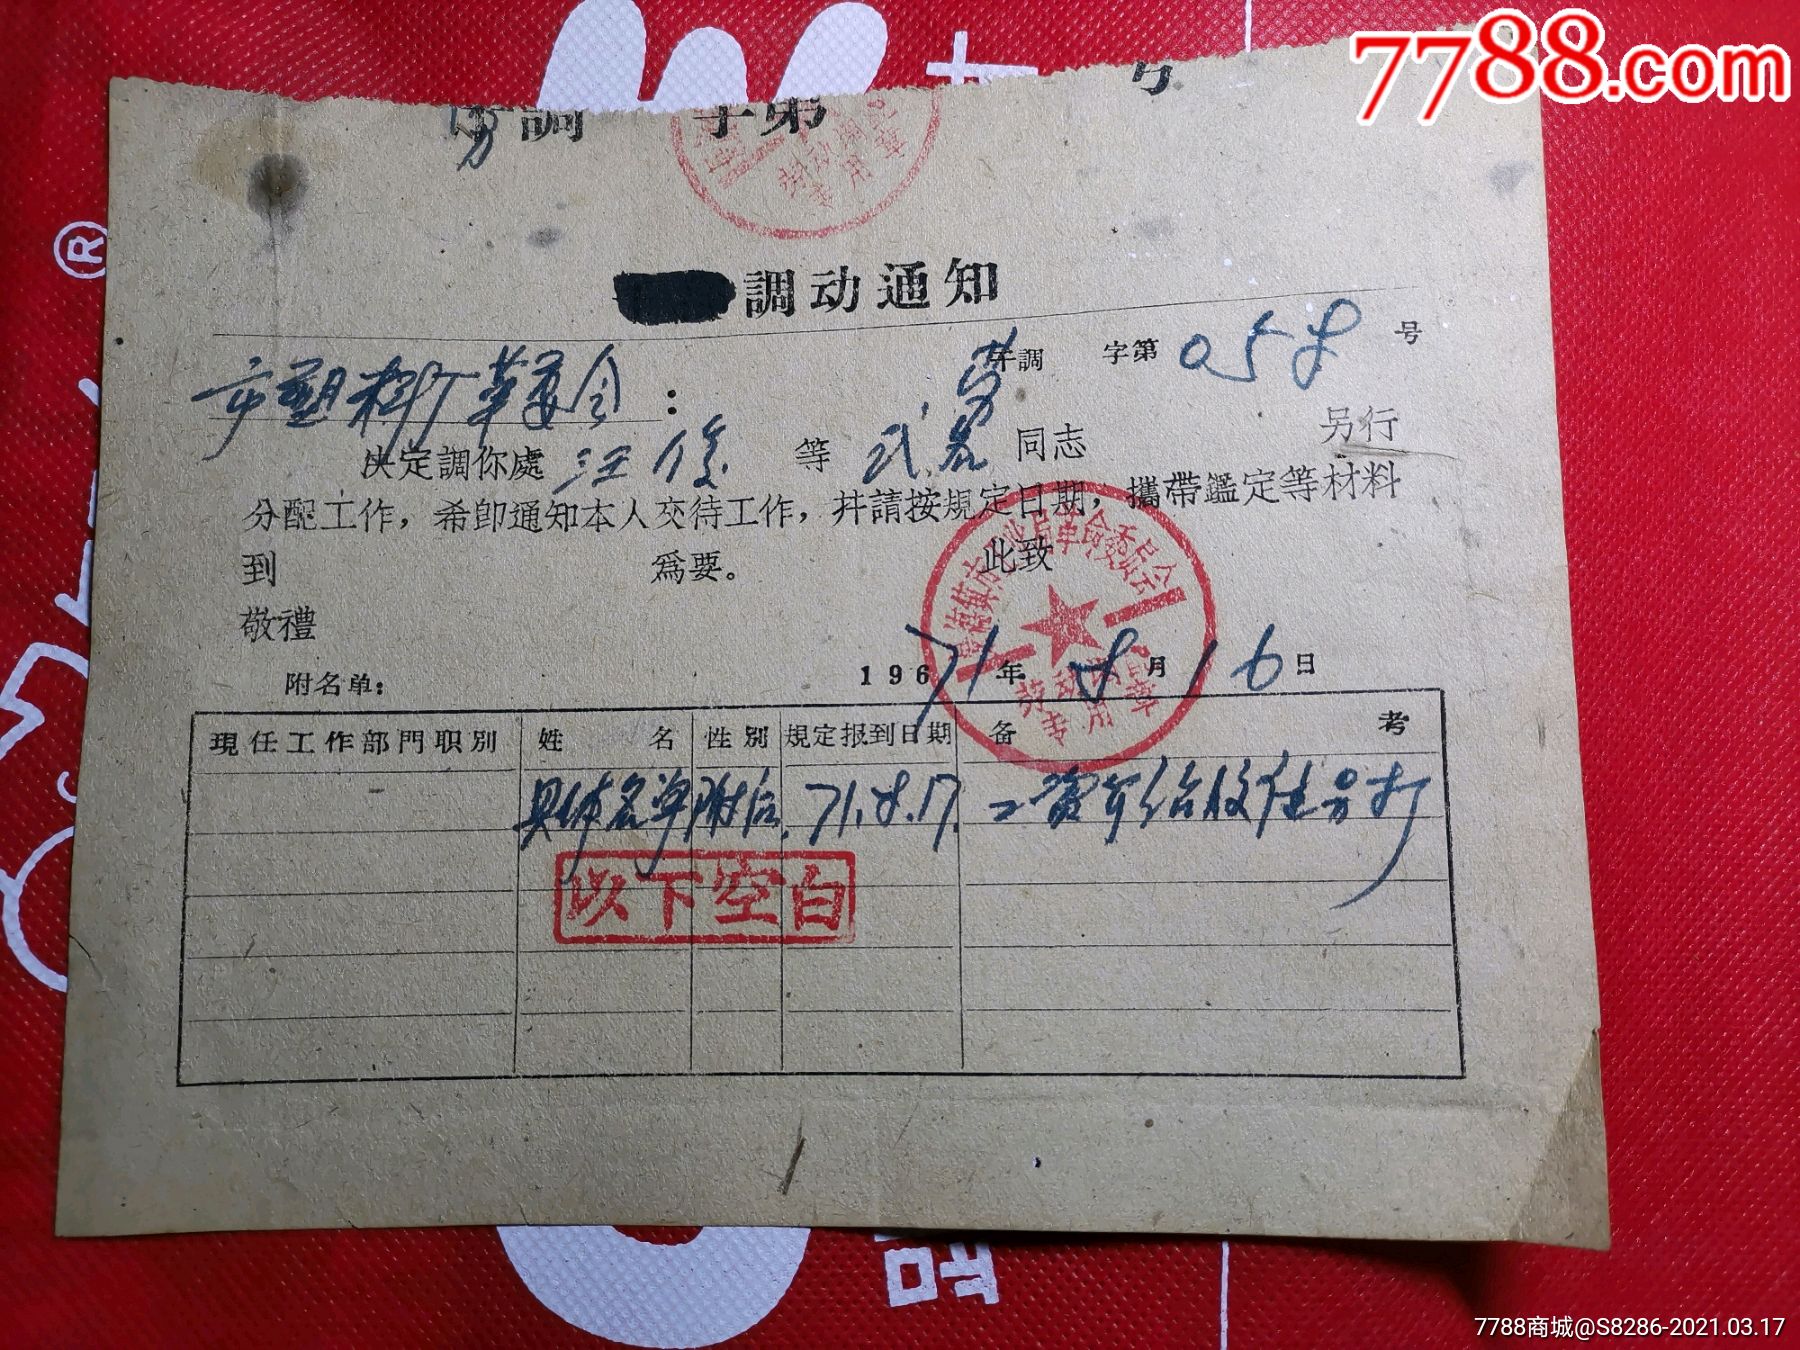 7788.com
劳調 字第 号
調动通知
劳調 字第 058 号
市塑料厂革委会：
决定調你處 汪俊 等 弍名 同志 另行
分配工作，希卽通知本人交待工作，并請按規定日期，攜帶鑑定等材料
到 爲要。 此致
敬禮
景德鎮市 局革命委員会
专用章
1971年8月16日
附名单：
現任工作部門职別 姓名 性別 規定报到日期 备考
具体名单附后. 71.8.17. 工资介绍收住另打
以下空白
®
7788商城@S8286-2021.03.17